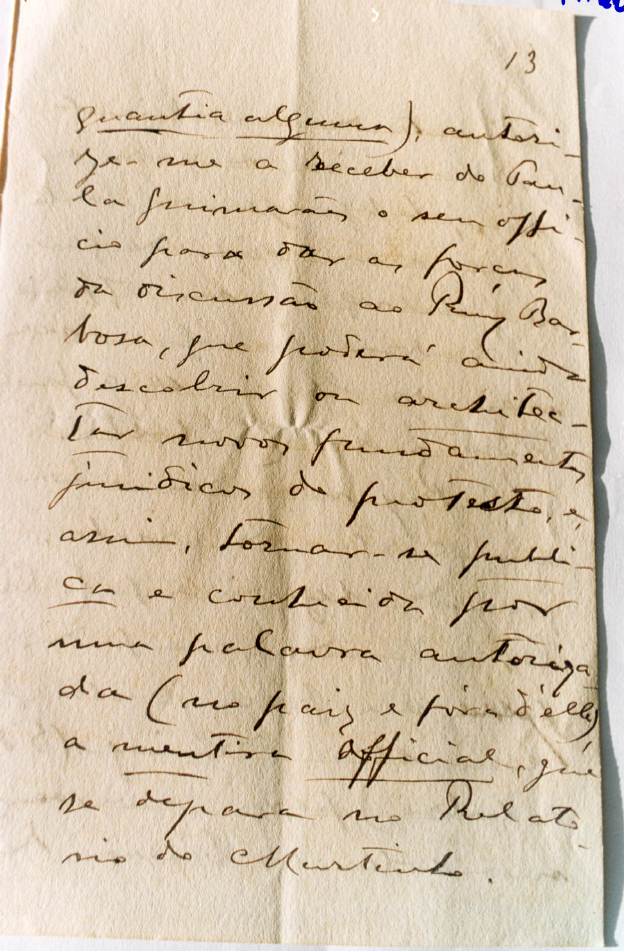 13
quantia alguma), autori-
ze-me a receber do Pau-
la Guimarães o seu offi-
cio para dar as forças
da discussão ao Ruy Bar-
bosa, que poderá ainda
descobrir ou architec-
tar novos fundamentos
juridicos do protesto, e,
assim, tornar-se publi-
ca e conhecida por
uma palavra autoriza-
da (no paiz e fóra d'elle)
a mentira official, que
se depara no Relato-
rio do Murtinho.